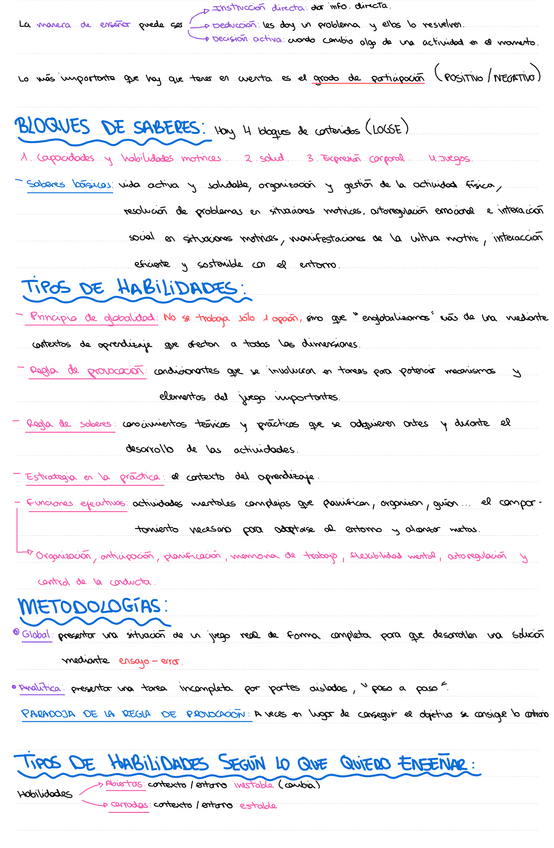 Instrucción directa: dar info. directa.
La manera de enseñar puede ser
Deducción: les doy un problema y ellos lo resuelven.
Decisión activa: cuando cambio algo de una actividad en el momento.
Lo más importante que hay que tener en cuenta es el grado de participación (POSITIVO / NEGATIVO)
BLOQUES DE SABERES: Hay 4 bloques de contenidos (LOGSE)
1. Capacidades y habilidades motrices. 2. Salud. 3. Expresión corporal. 4. Juegos.
- Saberes básicos: vida activa y saludable, organización y gestión de la actividad física,
resolución de problemas en situaciones motrices, autorregulación emocional e interacción
social en situaciones motrices, manifestaciones de la cultura motriz, interacción
eficiente y sostenible con el entorno.
TIPOS DE HABILIDADES:
- Principio de globalidad: No se trabaja sólo 1 opción, sino que "englobalizamos" más de una mediante
contextos de aprendizaje que afectan a todas las dimensiones.
- Regla de provocación: condicionantes que se involucran en tareas para potenciar mecanismos y
elementos del juego importantes.
- Regla de saberes: conocimientos teóricos y prácticos que se adquieren antes y durante el
desarrollo de las actividades.
- Estrategia en la práctica: el contexto del aprendizaje.
- Funciones ejecutivas: actividades mentales complejas que planifican, organizan, guían... el compor-
tamiento necesario para adaptarse al entorno y alcanzar metas.
Organización, anticipación, planificación, memoria de trabajo, flexibilidad mental, autorregulación y
control de la conducta.
METODOLOGÍAS:
Global: presentar una situación de un juego real de forma completa para que desarrollen una solución
mediante ensayo-error.
Analítica: presentar una tarea incompleta por partes aisladas, "paso a paso".
PARADOJA DE LA REGLA DE PROVOCACIÓN: A veces en lugar de conseguir el objetivo se consigue lo contrario
TIPOS DE HABILIDADES SEGÚN LO QUE QUIERO ENSEÑAR:
Abiertas: contexto / entorno inestable (cambia)
Habilidades
Cerradas: contexto / entorno estable